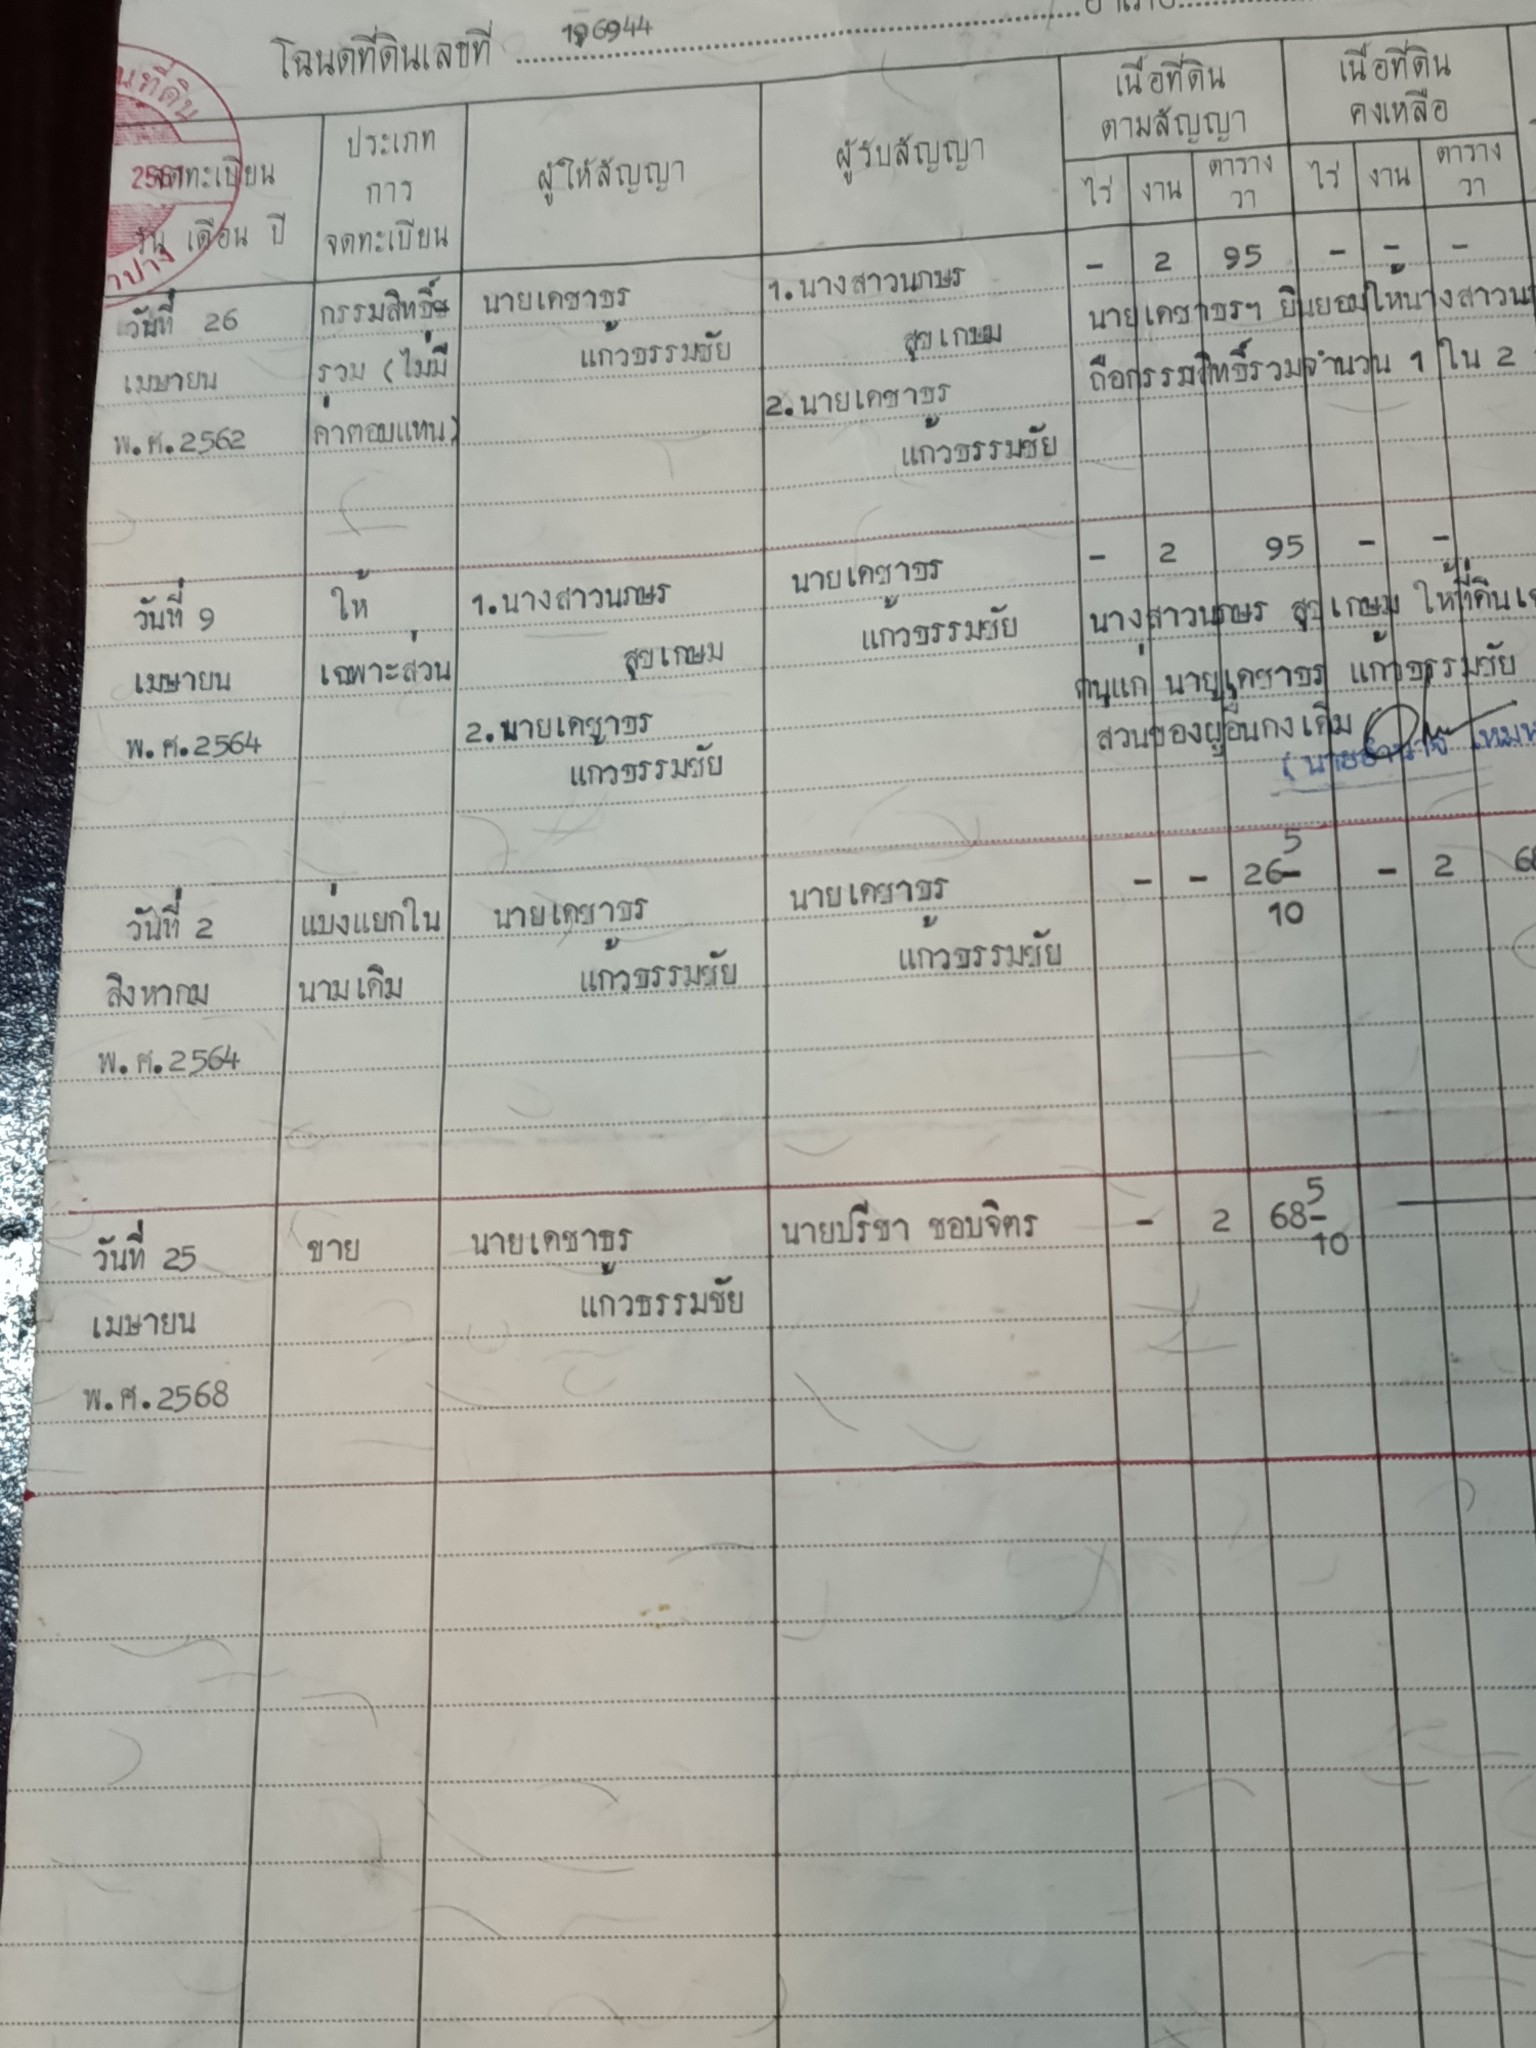 โฉนดที่ดินเลขที่
จดทะเบียน
วัน เดือน ปี
ประเภท
การ
จดทะเบียน
ผู้ให้สัญญา
ผู้รับสัญญา
เนื้อที่ดิน
ตามสัญญา
ไร่ งาน ตาราง
วา
เนื้อที่ดิน
คงเหลือ
ไร่ งาน ตาราง
วา
2561
วันที่ 26
เมษายน
พ.ศ.2562
กรรมสิทธิ์
รวม (ไม่มี
ค่าตอบแทน)
นายเดชาธร
แก้วธรรมชัย
1.นางสาวนภษร
สุขเกษม
2.นายเดชาธร
แก้วธรรมชัย
- 2 95 - - -
นายเดชาธรฯ ยินยอมให้นางสาว
ถือกรรมสิทธิ์รวมจำนวน 1 ใน 2
วันที่ 9
เมษายน
พ.ศ.2564
ให้
เฉพาะส่วน
1.นางสาวนภษร
สุขเกษม
2.นายเดชาธร
แก้วธรรมชัย
นายเดชาธร
แก้วธรรมชัย
- 2 95 - -
นางสาวนภษร สุขเกษม ให้ที่ดิน
ตนแก่ นายเดชาธร แก้วธรรมชัย
ส่วนของผู้อื่นคงเดิม
วันที่ 2
สิงหาคม
พ.ศ.2564
แบ่งแยกใน
นามเดิม
นายเดชาธร
แก้วธรรมชัย
นายเดชาธร
แก้วธรรมชัย
- - 26 5/10 - 2
วันที่ 25
เมษายน
พ.ศ.2568
ขาย
นายเดชาธร
แก้วธรรมชัย
นายปรีชา ชอบจิตร
- 2 68 5/10